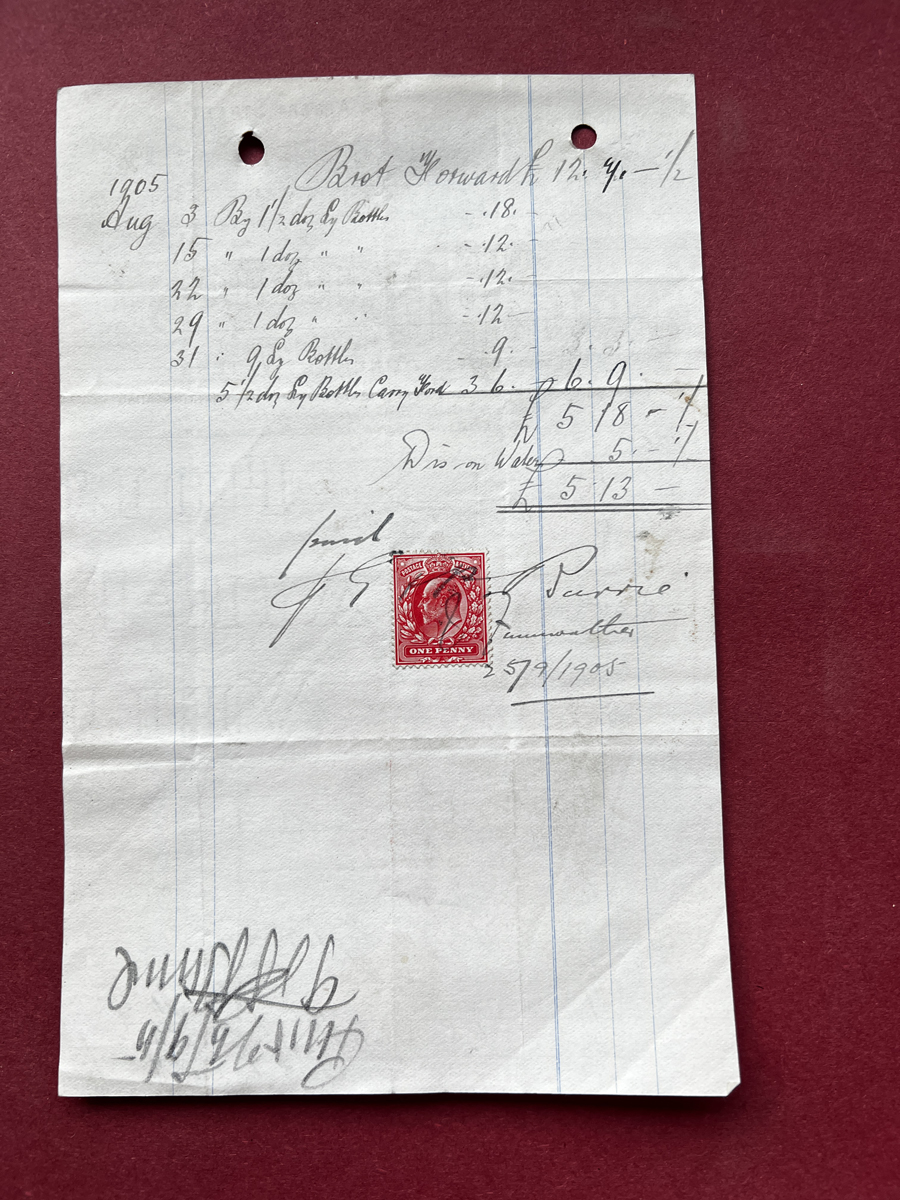 1905
Brot Forward £ 12. 4. – ½
Aug 3 By 1½ doz Ly Bottles - .18. -
15 " 1 doz " " - .12. -
22 " 1 doz " " - .12. -
29 " 1 doz " " - .12 -
31 " 9 Ly Bottles - 9. - 3. 3. -
5½ doz Ly Bottles Carry Ford 3 6. 6. 9. -
£ 5 18 - ½
Dis on Water 5. - ½
£ 5 13 -
paid
POSTAGE
ONE PENNY
Barrie
25/9/1905